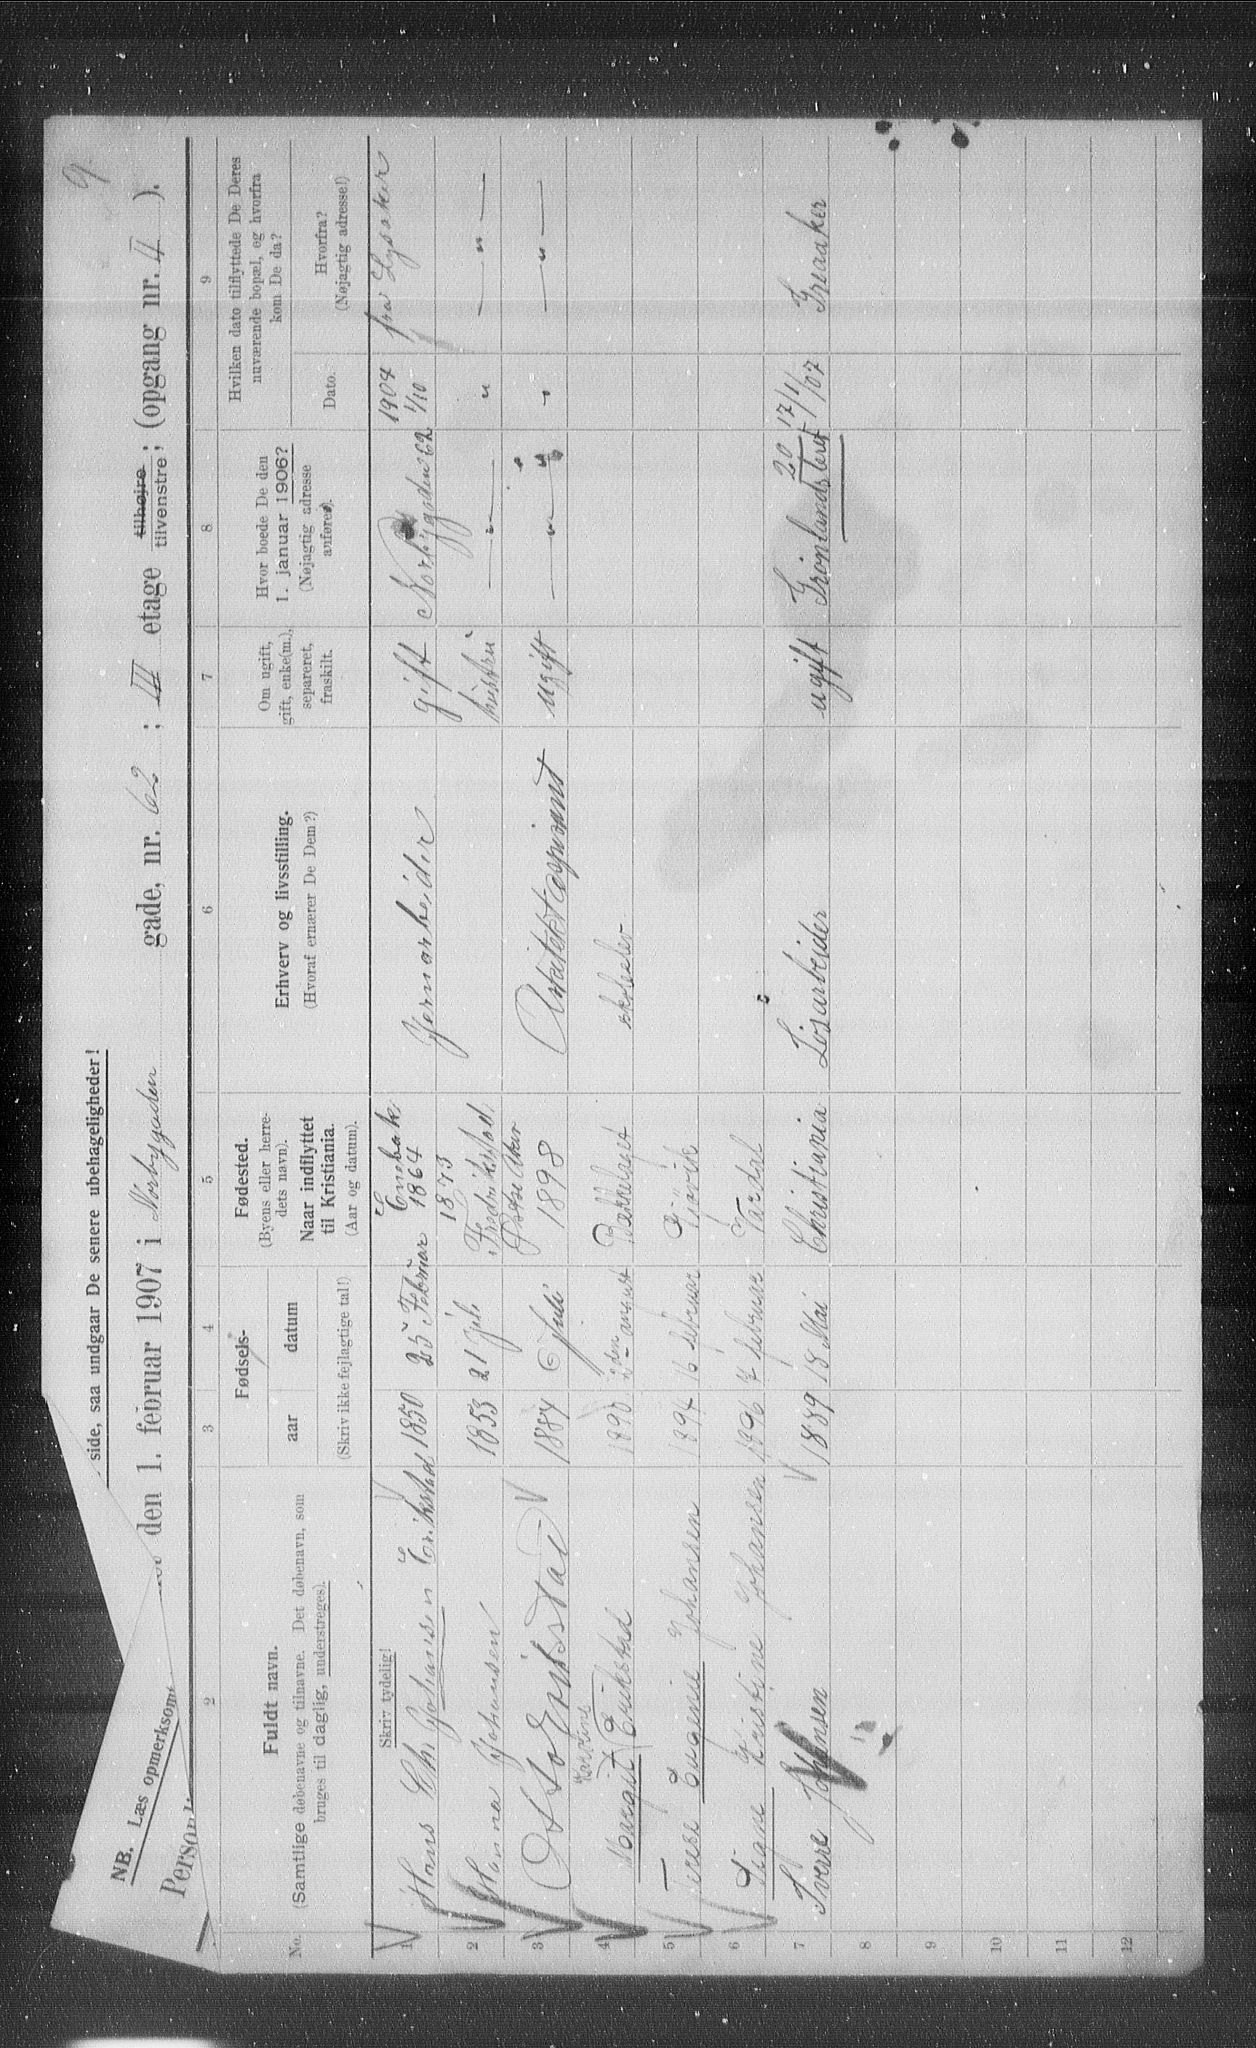 9
side, saa undgaar De senere ubehageligheder!
NB. Læs opmerksom
Personli
den 1. februar 1907 i Norbygaden gade, nr. 62 ; III etage tilhøjre tilvenstre ; (opgang nr. II ).
No.
2
Fuldt navn.
(Samtlige døbenavne og tilnavne. Det døbenavn, som
bruges til daglig, understreges).
3
4
Fødsels-
aar
datum
(Skriv ikke fejlagtige tal!)
5
Fødested.
(Byens eller herre-
dets navn).
Naar indflyttet
til Kristiania.
(Aar og datum).
6
Erhverv og livsstilling.
(Hvoraf ernærer De Dem?)
7
Om ugift,
gift, enke(m.),
separeret,
fraskilt.
8
Hvor boede De den
1. januar 1906?
(Nøjagtig adresse
anføres).
9
Hvilken dato tilflyttede De Deres
nuværende bopæl, og hvorfra
kom De da?
Dato.
Hvorfra?
(Nøjagtig adresse!)
Skriv tydelig!
1 Hans Chr. Johansen Erikstad 1850 25 Februar Enebak 1864 Jernarbeider gift Norbygaden 62 1904 1/10 fra Lysaker
2 Hanna Johansen 1853 21 Juli 1873 Fredrikstad hustru " " "
3 Otto Erikstad 1884 6 Juli Østre Aker 1898 ugift " " "
4 Margit Erikstad 1890 august Bækkelaget skoleelev
5 Terese Eugenie Johansen 1894 16 februar Gjøvik
6 Signe Kristine Johansen 1896 februar Vardal
7 Sverre Johansen 1889 18 Mai Christiania Løsarbeider ugift Grønlandsleret 20 17/1/07 Greaaker
8
9
10
11
12